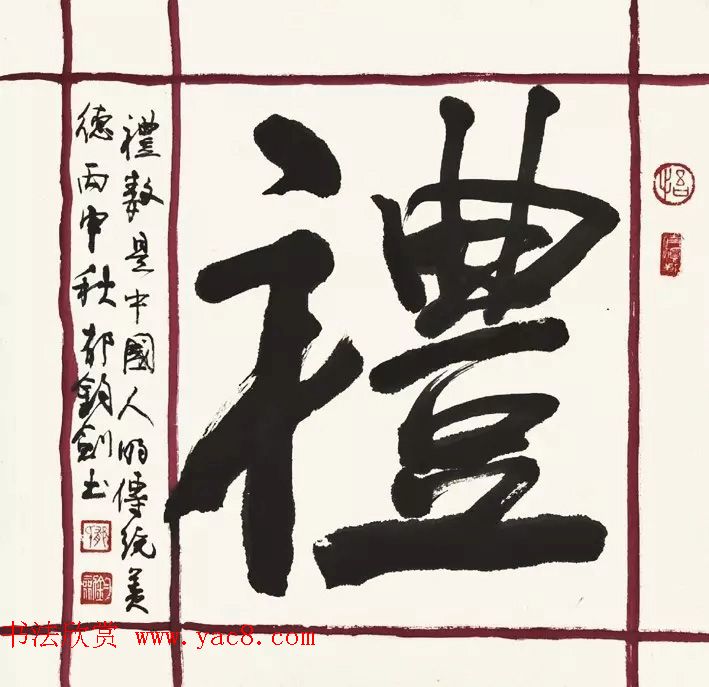 禮
禮數是中國人的傳統美
德丙申秋郁鈞劍书
书法欣赏 www.yac8.com